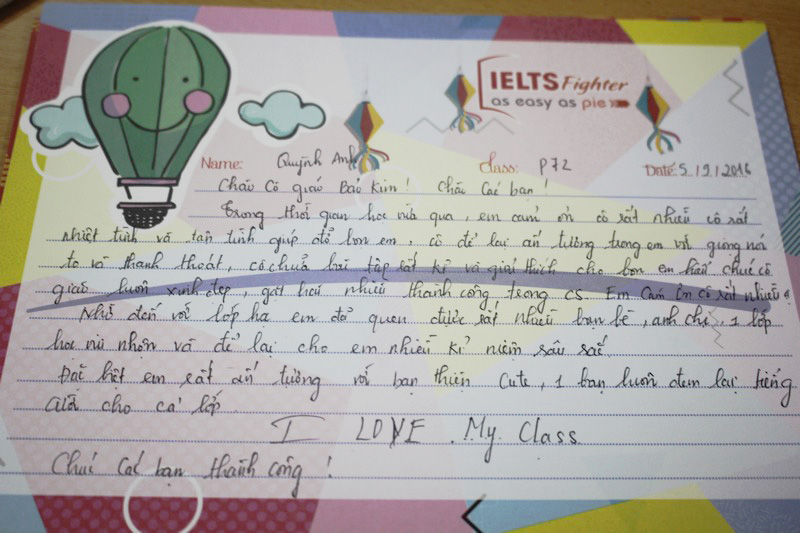 IELTS Fighter
as easy as pie
Name: Quỳnh Anh Class: P72 Date: 5/9/2016
Chào Cô giáo Bảo Kim! Chào Các bạn!
Trong thời gian học vừa qua, em cảm ơn cô rất nhiều cô rất
nhiệt tình và tận tình giúp đỡ bọn em, cô để lại ấn tượng trong em với giọng nói
to và thanh thoát, cô chuẩn bài tập rất kĩ và giải thích cho bọn em hiểu chúc cô
giáo luôn xinh đẹp, gặt hái nhiều thành công trong cs. Em Cảm ơn cô rất nhiều!
Nhờ đến với lớp hà em đã quen được rất nhiều bạn bè, anh chị, 1 lớp
học vui nhộn và để lại cho em nhiều kỉ niệm sâu sắc.
Đặc biệt em rất ấn tượng với bạn thiện Cute, 1 bạn luôn đem lại tiếng
cười cho cả lớp.
I LOVE My Class
Chúc Các bạn thành công!